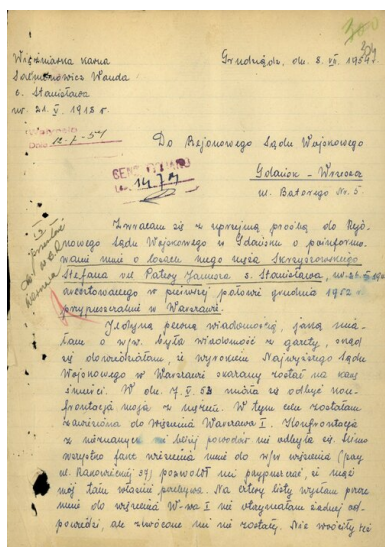 300
304
Więźniarka karna
Grudziądz, dn. 8. VII. 1954 r.
Wanda
c. Stanisława
ur. 21. V. 1918 r.
Do Rejonowego Sądu Wojskowego
Gdańsk - Wrzeszcz
ul. Batorego Nr. 5
Zwracam się z uprzejmą prośbą do Rejo-
nowego Sądu Wojskowego w Gdańsku o poinformo-
wanie mnie o losach mego męża Skrzyszowskiego
Stefana vel Patery Janusza s. Stanisława, ur.
aresztowanego w pierwszej połowie grudnia 1952 r.
przypuszczalnie w Warszawie.
Jedyną pewną wiadomością, jaką mia-
łam o w/w. była wiadomość z gazety, skąd
się dowiedziałam, iż wyrokiem Najwyższego Sądu
Wojskowego w Warszawie skazany został na karę
śmierci. W dn. 7. V. 53 miała się odbyć kon-
frontacja moja z mężem. W tym celu zostałam
zawieziona do więzienia Warszawa I. Konfrontacja
z nieznanych mi bliżej powodów nie odbyła się. Mimo
wszystko fakt wiezienia mnie do w/w więzienia (przy
ul. Rakowieckiej 37) pozwolił mi przypuszczać, iż mąż
mój tam właśnie przebywa. Na cztery listy wysłane przeze
mnie do więzienia W-wa I nie otrzymałam żadnej od-
powiedzi, ale zwrócone mi nie zostały. Nie wróciły też